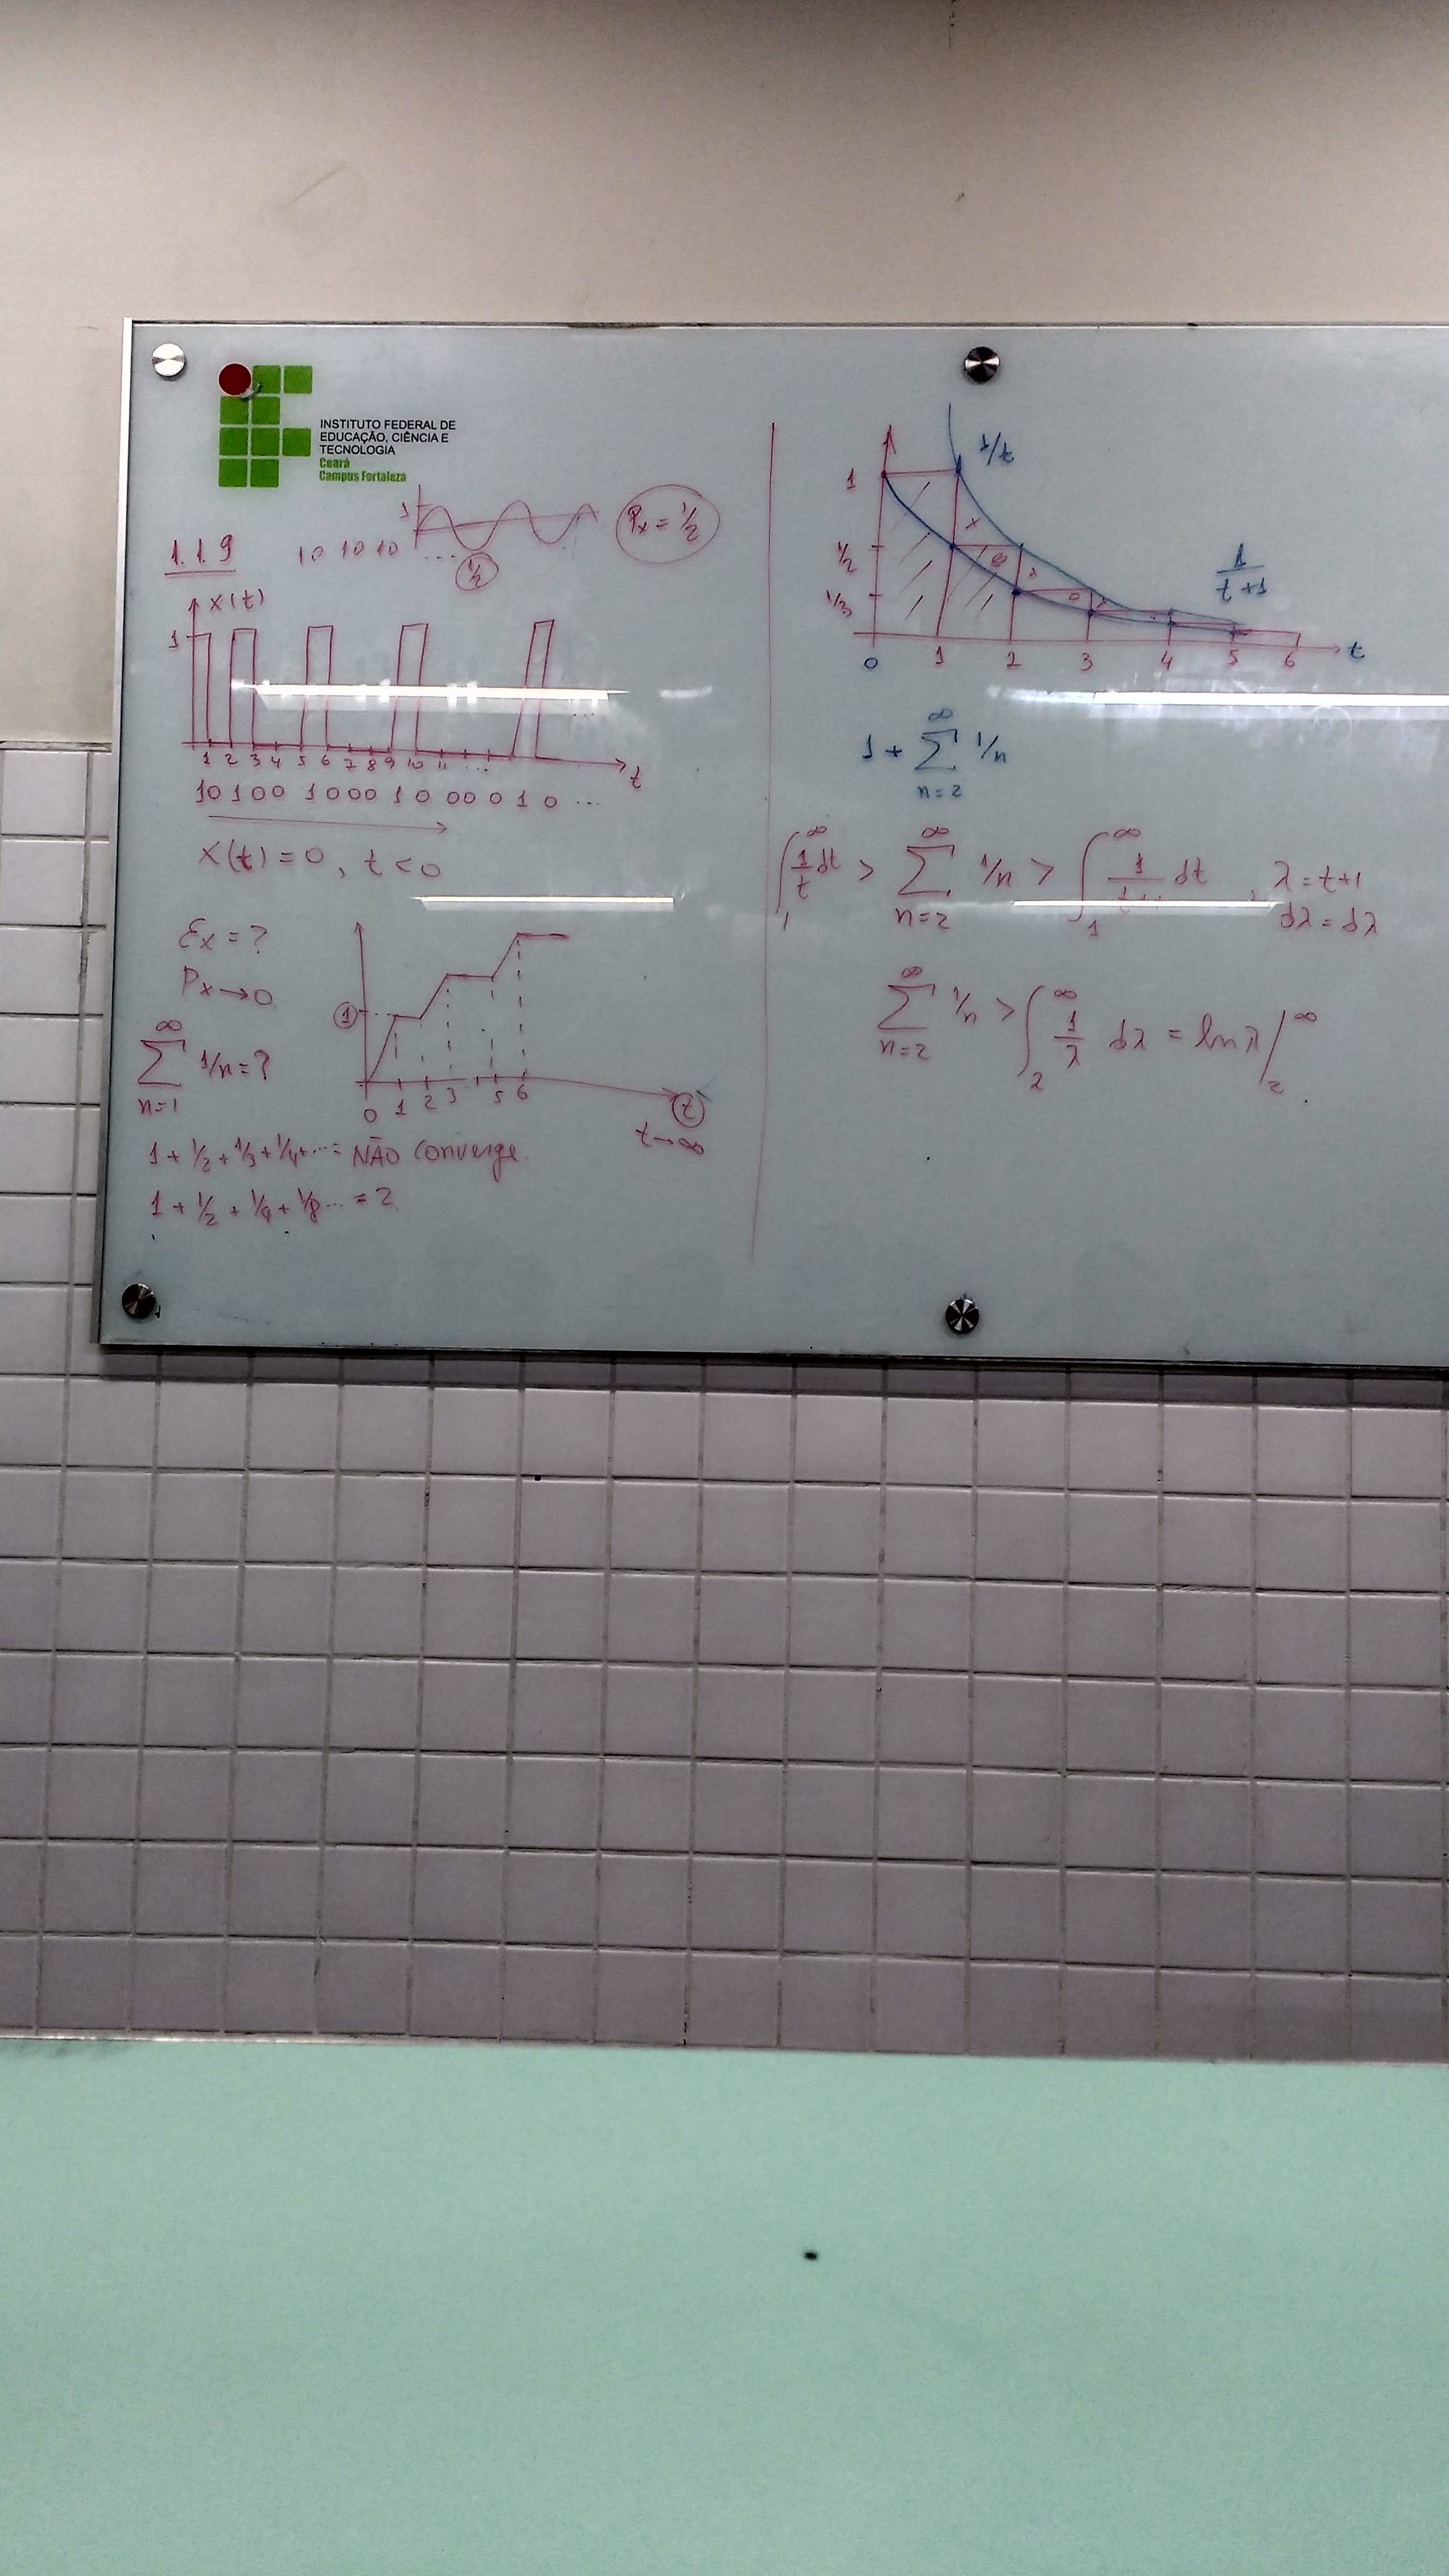 INSTITUTO FEDERAL DE
EDUCAÇÃO, CIÊNCIA E
TECNOLOGIA
Ceará
Campus Fortaleza
1
Px = 1/2
1.1.9
10 10 10 ....
1/2
x(t)
1
...
1 2 3 4 5 6 7 8 9 10 11 ...
t
10 100 1000 10 000 10 ...
x(t) = 0, t < 0
Ex = ?
Px → 0
∞
∑ 1/n = ?
n=1
1
0 1 2 3 5 6
t
t→∞
1 + 1/2 + 1/3 + 1/4 + ... = NÃO converge.
1 + 1/2 + 1/4 + 1/8 ... = 2
1/t
1
1/2
1/3
1/(t+1)
0 1 2 3 4 5 6 t
∞
1 + ∑ 1/n
n=2
∫₁^∞ 1/t dt > ∑_{n=2}^∞ 1/n > ∫₁^∞ 1/(t+1) dt, λ = t+1
dλ = dλ
∑_{n=2}^∞ 1/n > ∫₂^∞ 1/λ dλ = ln λ |₂^∞